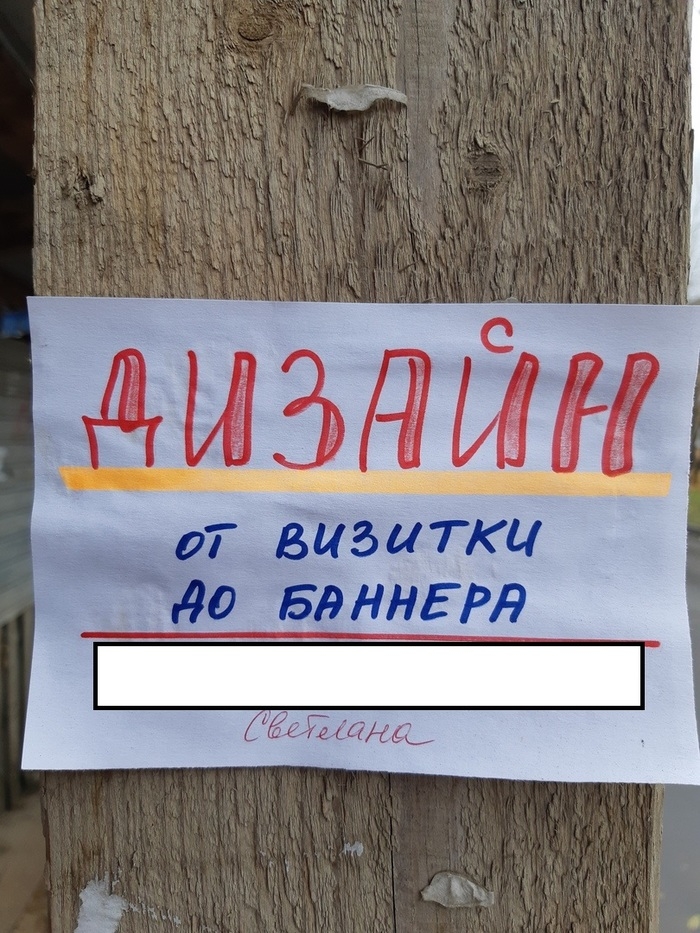 ДИЗАЙН
от ВИЗИТКИ
ДО БАННЕРА
Светлана